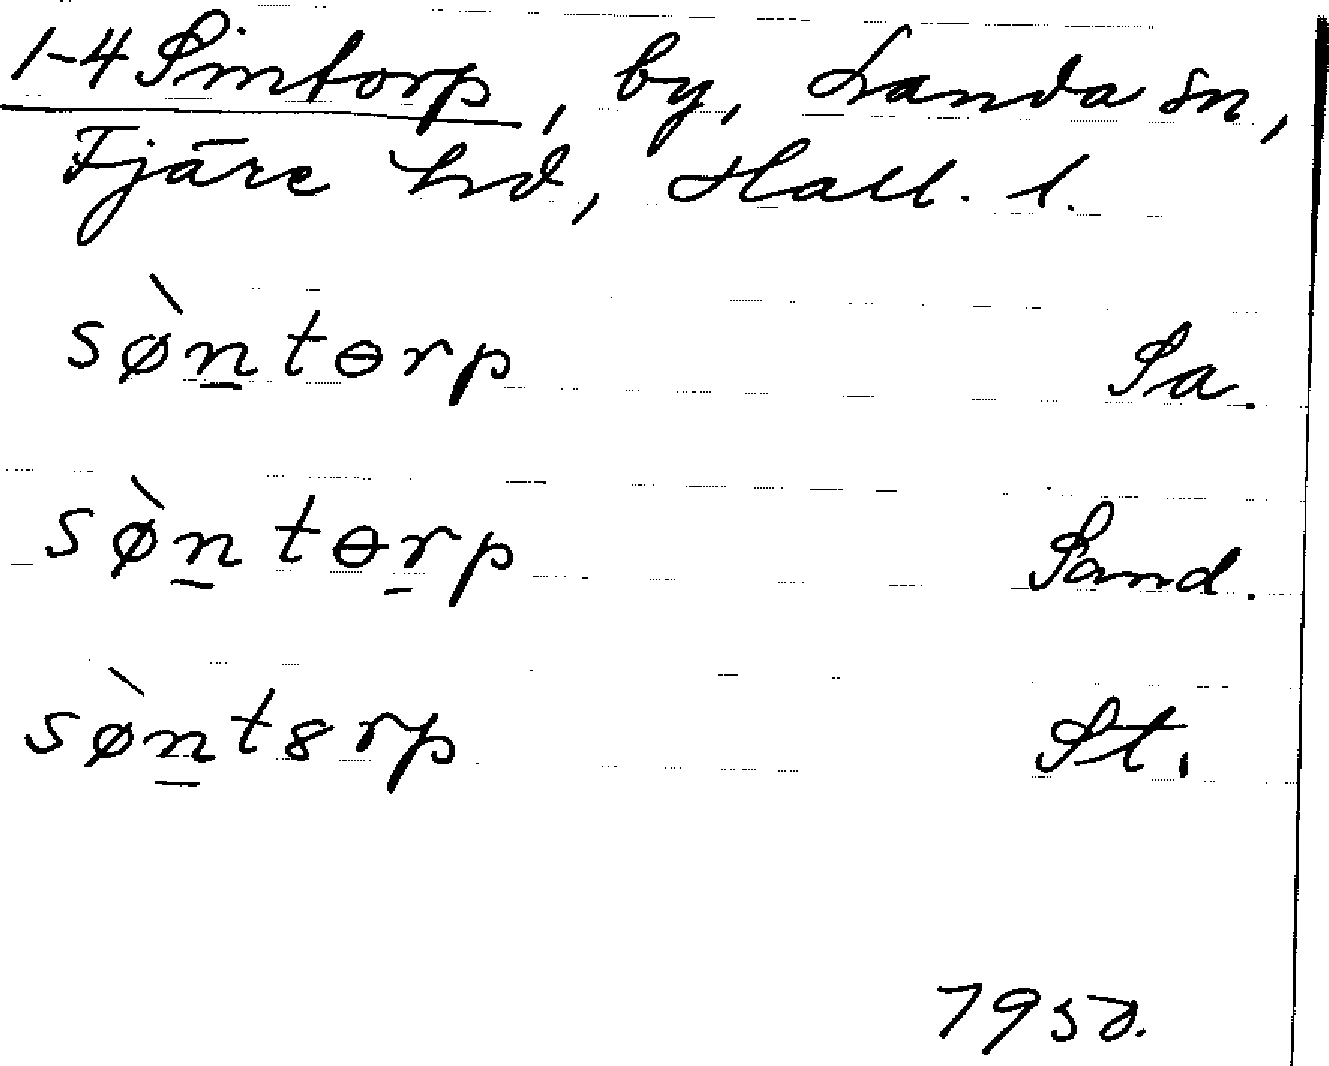 1-4 Sintorp, by, Landa sn,
Fjäre hd, Hall. l.
sø̀n̠tɵrp Sa.
sø̀n̠tɵr̠p Sand.
sø̀n̠t8rp St.